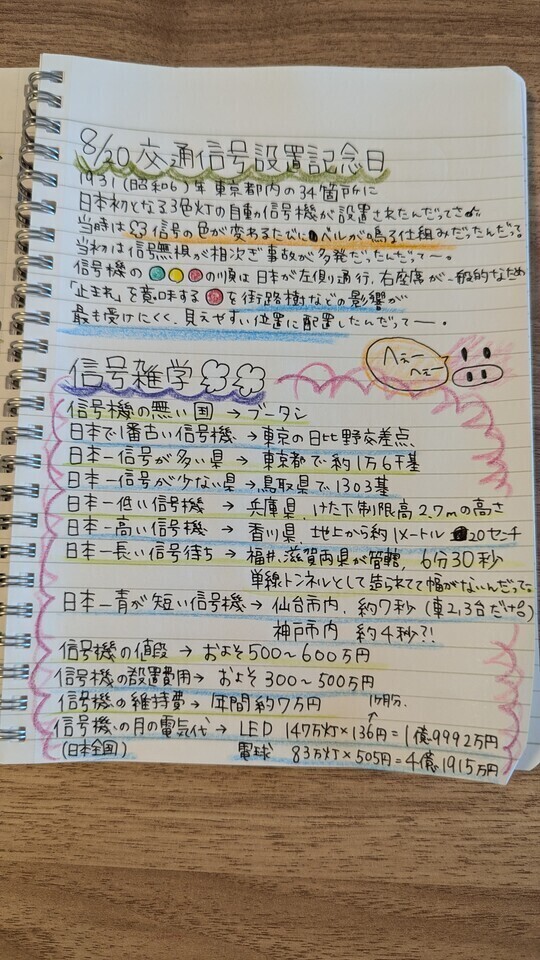 8/20 交通信号設置記念日
1931(昭和6)年 東京都内の34箇所に
日本初となる3色灯の自動信号機が設置されたんだってさ
当時は信号の色が変わるたびにベルが鳴る仕組みだったんだって。
当初は信号無視が相次ぎ事故が多発だったんだってー。
信号機の の順は日本が左側通行、右座席が一般的なため
「止まれ」を意味する を街路樹などの影響が
最も受けにくく、見えやすい位置に配置したんだってー。
へぇー
へぇー
信号雑学
信号機の無い国 → ブータン
日本で1番古い信号機 → 東京の日比野交差点、
日本一信号が多い県 → 東京都で約1万6千基
日本一信号が少ない県 → 鳥取県で1303基
日本一低い信号機 → 兵庫県、けた下制限高2.7mの高さ
日本一高い信号機 → 香川県、地上から約1メートル 20センチ
日本一長い信号待ち → 福井、滋賀両県が管轄、6分30秒
単線トンネルとして造られてて幅がないんだって。
日本一青が短い信号機 → 仙台市内、約7秒(車2,3台だけ)
神戸市内 約4秒?!
信号機の値段 → およそ500〜600万円
信号機の設置費用 → およそ300〜500万円
信号機の維持費 → 1年間約7万円
1ヶ月分、
信号機の月の電気代 → LED 147万灯×136円=1億9992万円
(日本全国) 電球 83万灯×505円=4億1915万円